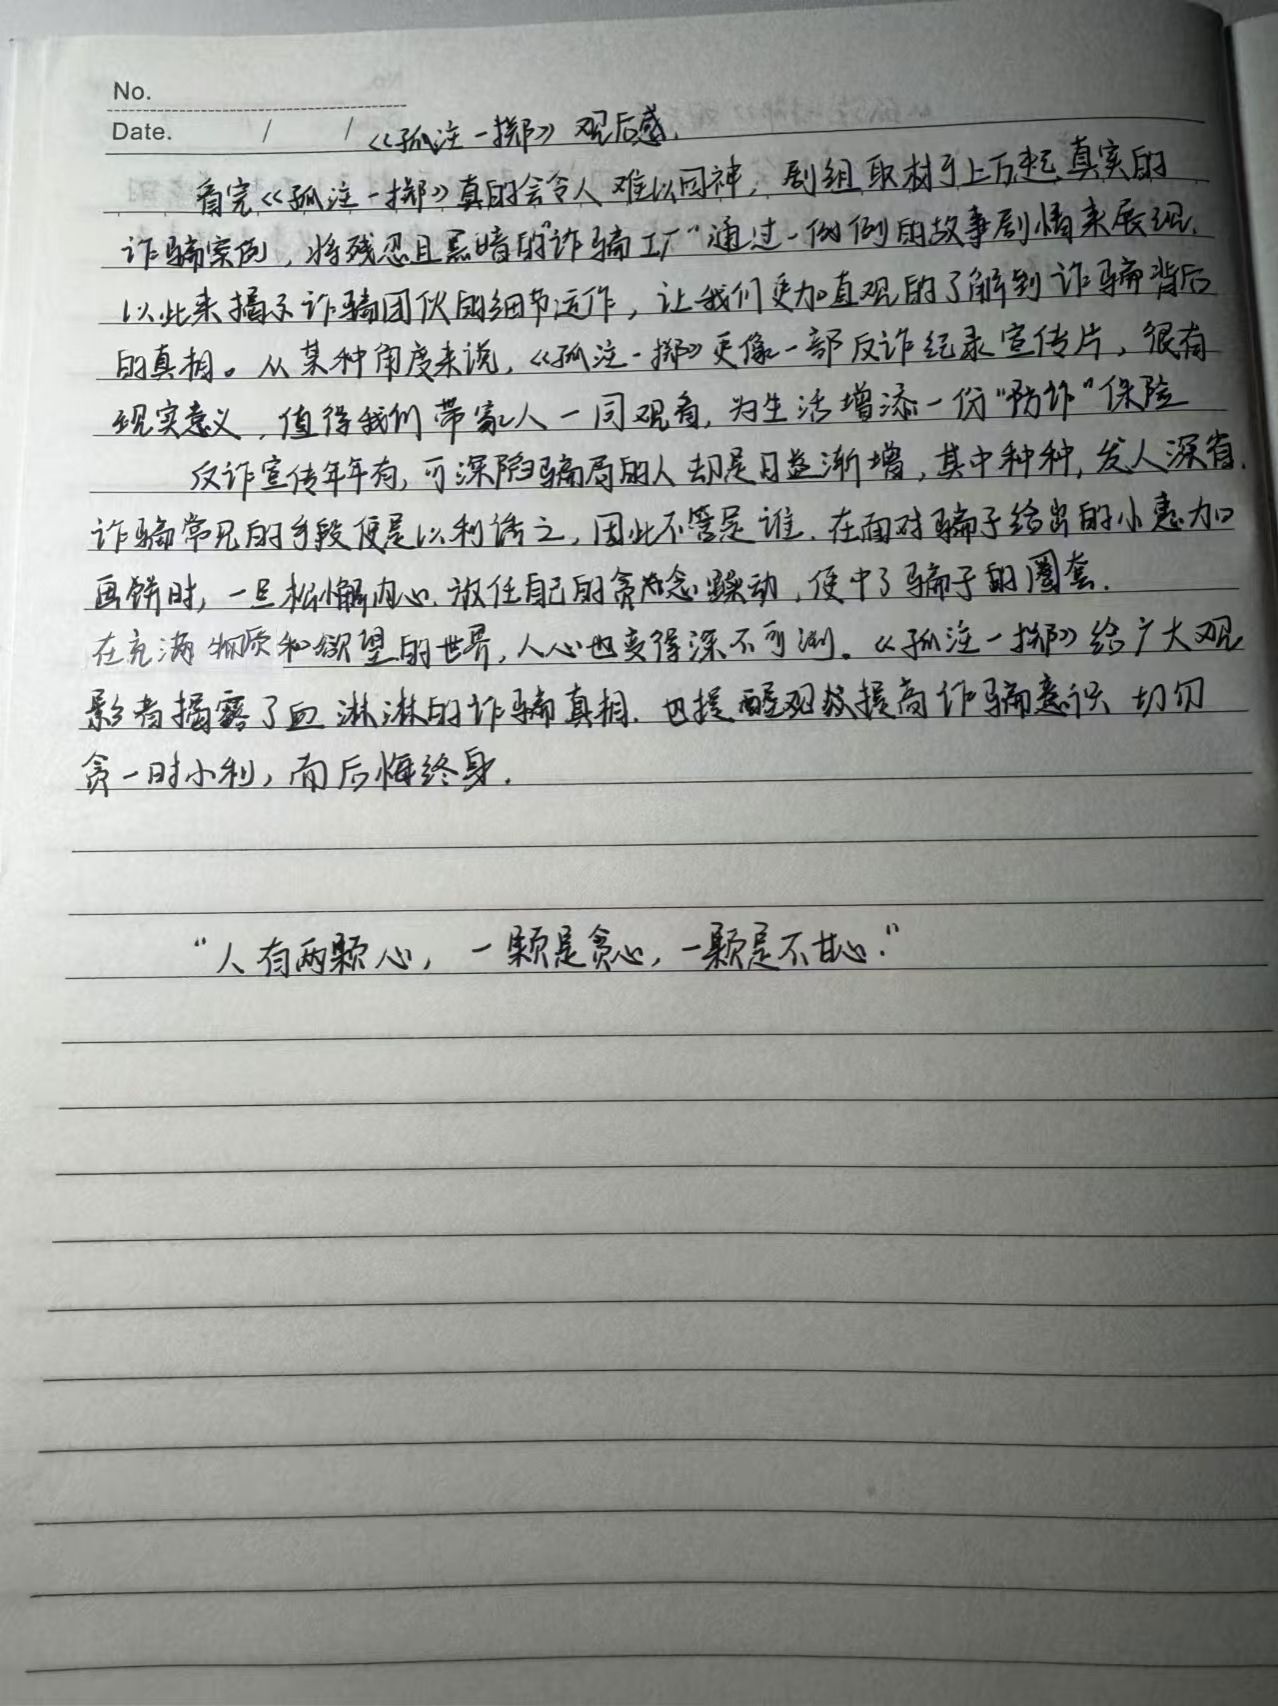 No.
Date. / /
《孤注一掷》观后感.
看完《孤注一掷》真的会令人难以回神，剧组取材于上万起真实的
诈骗案例，将残忍且黑暗的“诈骗工厂”通过一例例的故事剧情来展现.
以此来揭示诈骗团伙的细节运作，让我们更加直观的了解到诈骗背后
的真相。从某种角度来说，《孤注一掷》更像一部反诈纪录宣传片，很有
现实意义，值得我们带家人一同观看，为生活增添一份“防诈”保险
反诈宣传年年有，可深陷骗局的人却是日益渐增，其中种种，发人深省.
诈骗常见的手段便是以利诱之，因此不管是谁.在面对骗子给出的小惠加
画饼时，一旦松懈内心.放任自己的贪念躁动，便中了骗子的圈套.
在充满物质和欲望的世界，人心也变得深不可测。《孤注一掷》给广大观
影者揭露了血淋淋的诈骗真相.也提醒观众提高诈骗意识 切勿
贪一时小利，而后悔终身.
“人有两颗心，一颗是贪心，一颗是不甘心.”